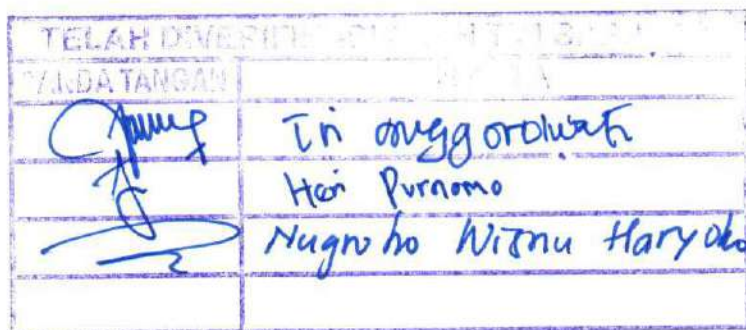 TELAH DIVERIFI
TANDA TANGAN
Tri anggorowati
Hari Purnomo
Nugroho Wisnu Haryoko